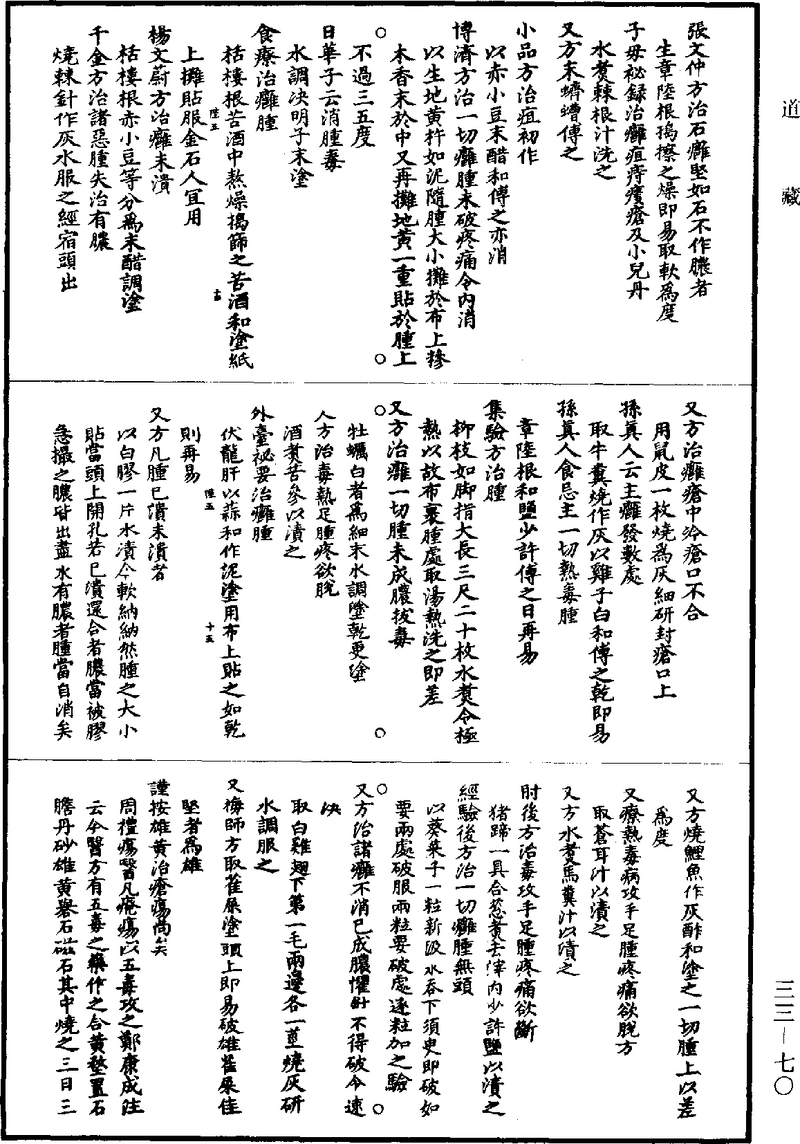 道藏
張文仲方治石癰堅如石不作膿者
生章陸根搗擦之燥即易取軟為度
子母祕録治癰疽痔瘻瘡及小兒丹
水煑棘根汁洗之
又方末蠐螬傅之
小品方治疽初作
以赤小豆末醋和傅之亦消
博濟方治一切癰腫未破疼痛令內消
以生地黄杵如泥隨腫大小攤於布上糝
木香末於中又再攤地黄一重貼於腫上
不過三五度
日華子云消腫毒
水調决明子末塗
食療治癰腫
栝樓根苦酒中熬燥搗篩之苦酒和塗紙
上攤貼服金石人宜用
楊文蔚方治癰未潰
栝樓根赤小豆等分為末醋調塗
千金方治諸惡腫失治有膿
燒棘針作灰水服之經宿頭出
又方治癰瘡中冷瘡口不合
用鼠皮一枚燒為灰細研封瘡口上
孫真人云主癰發數處
取牛糞燒作灰以雞子白和傅之乾即易
孫真人食忌主一切熱毒腫
章陸根和鹽少許傅之日再易
集驗方治腫
柳枝如脚指大長三尺二十枚水煑令極
熱以故布裹腫處取湯熱洗之即差
又方治癰一切腫未成膿拔毒
牡蠣白者為細末水調塗乾更塗
人方治毒熱足腫疼欲脫
酒煑苦參以漬之
外臺祕要治癰腫
伏龍肝以蒜和作泥塗用布上貼之如乾
則再易
又方凡腫已潰未潰者
以白膠一片水漬令軟納納然腫之大小
貼當頭上開孔若已潰還合者膿當被膠
急撮之膿皆出盡水有膿者腫當自消矣
又方燒鯉魚作灰酢和塗之一切腫上以差
為度
又療熱毒病攻手足腫疼痛欲脫方
取蒼耳汁以漬之
又方水煑馬糞汁以漬之
肘後方治毒攻手足腫疼痛欲斷
猪蹄一具合葱煑去滓內少許鹽以漬之
經驗後方治一切癰腫無頭
以葵菜子一粒新汲水吞下須臾即破如
要兩處破服兩粒要破處逐粒加之驗
又方治諸癰不消已成膿懼針不得破令速
決
取白雞翅下第一毛兩邊各一莖燒灰研
水調服之
又梅師方取雀屎塗頭上即易破雄雀屎佳
堅者為雄
謹按雄黄治瘡瘍尚矣
周禮瘍醫凡療瘍以五毒攻之鄭康成注
云今醫方有五毒之藥作之合黄堥置石
膽丹砂雄黄礜石磁石其中燒之三日三
三三－七〇